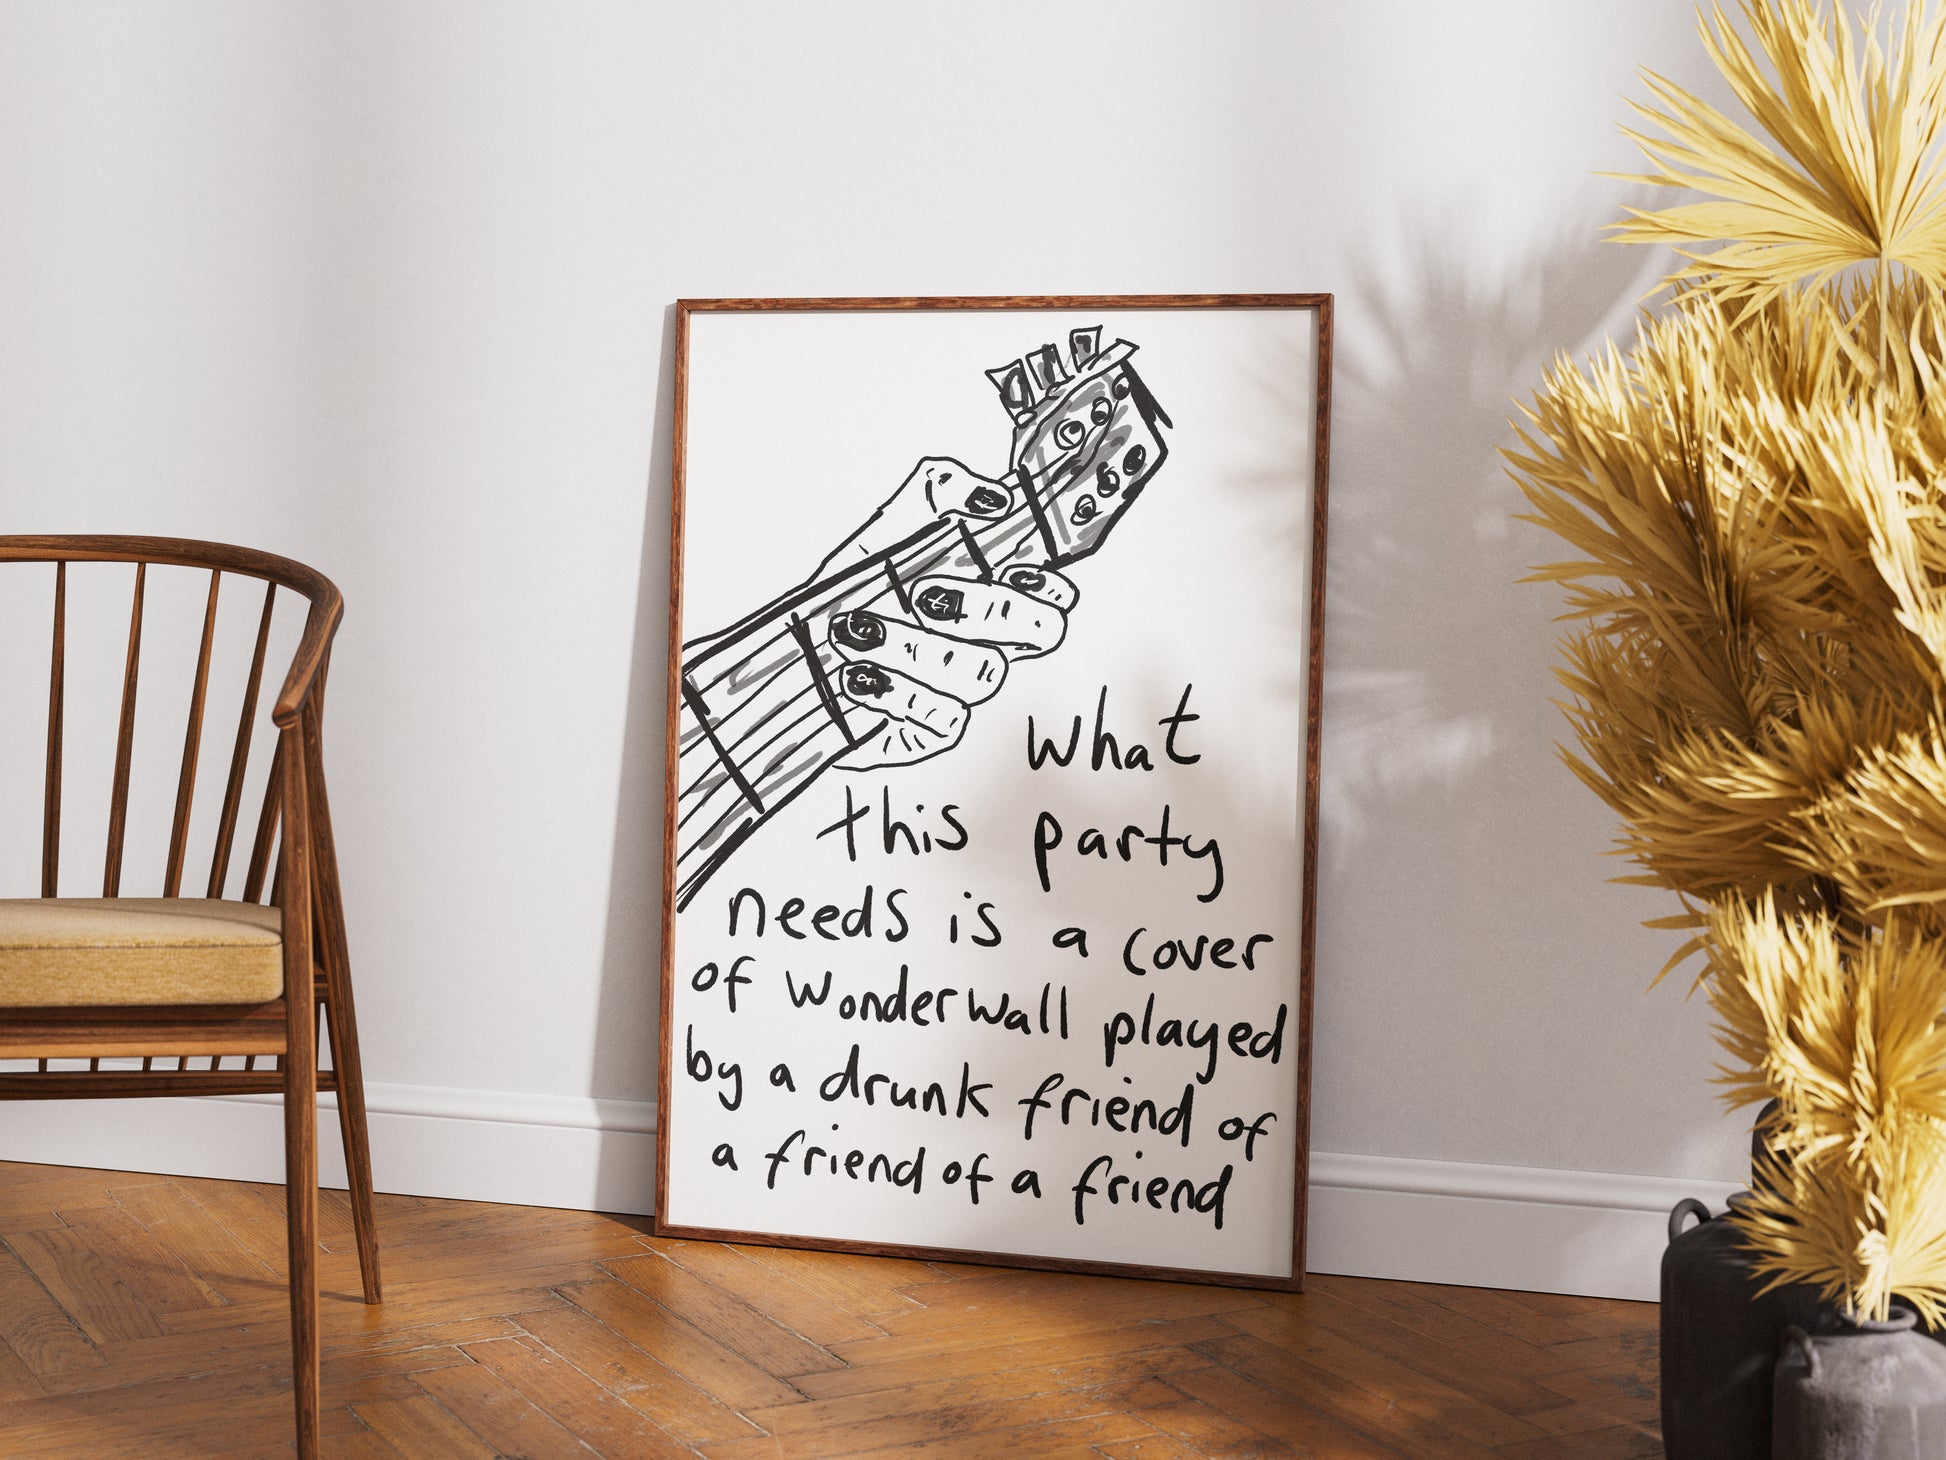 What
this party
needs is a cover
of Wonderwall played
by a drunk friend of
a friend of a friend